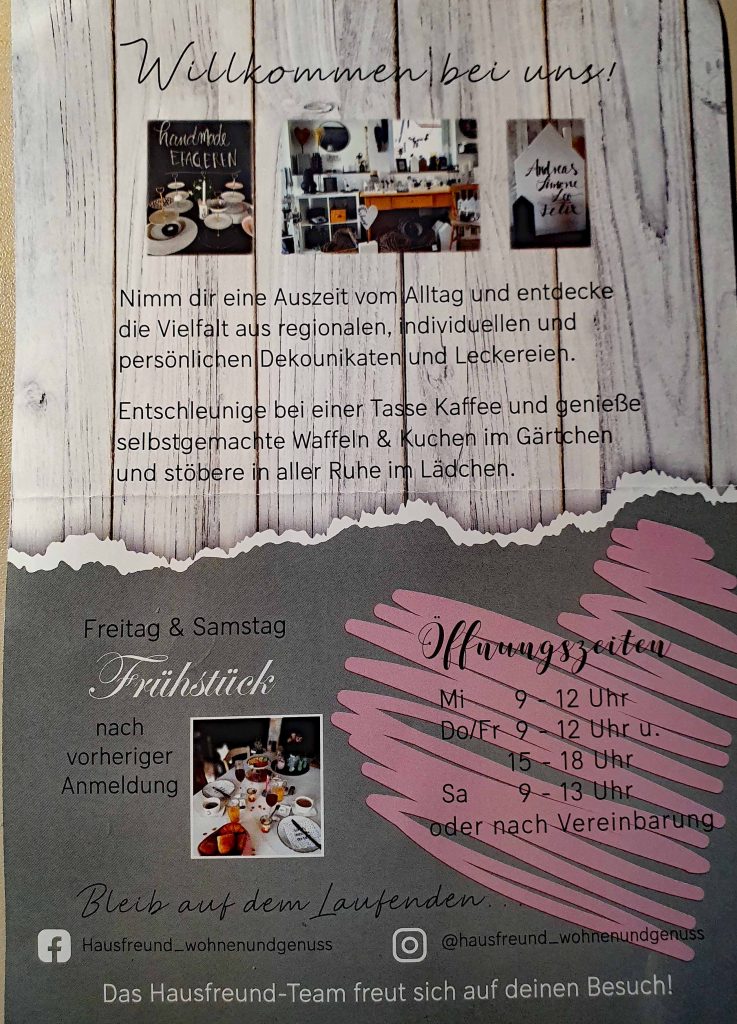 Willkommen bei uns!
handmade
ETAGEREN
Andreas
Simone
Leo
Felix
Nimm dir eine Auszeit vom Alltag und entdecke
die Vielfalt aus regionalen, individuellen und
persönlichen Dekounikaten und Leckereien.
Entschleunige bei einer Tasse Kaffee und genieße
selbstgemachte Waffeln & Kuchen im Gärtchen
und stöbere in aller Ruhe im Lädchen.
Freitag & Samstag
Frühstück
nach
vorheriger
Anmeldung
Öffnungszeiten
Mi 9 - 12 Uhr
Do/Fr 9 - 12 Uhr u.
15 - 18 Uhr
Sa 9 - 13 Uhr
oder nach Vereinbarung
Bleib auf dem Laufenden...
Hausfreund_wohnenundgenuss
@hausfreund_wohnenundgenuss
Das Hausfreund-Team freut sich auf deinen Besuch!